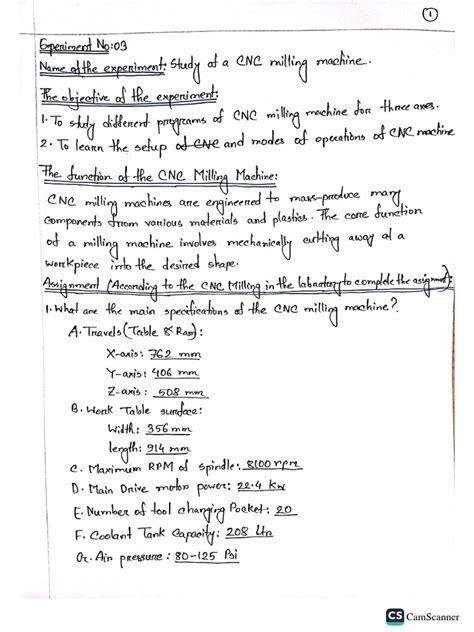 1
Experiment No:03
Name of the experiment: Study of a CNC milling machine.
The objective of the experiment:
1. To study different programs of CNC milling machine for three axes.
2. To learn the setup of CNC and modes of operations of CNC machine
The function of the CNC Milling Machine:
CNC milling machines are engineered to mass-produce many
components from various materials and plastics. The core function
of a milling machine involves mechanically cutting away at a
workpiece into the desired shape.
Assignment (According to the CNC Milling in the laboratory to complete the assignment):
1. What are the main specifications of the CNC milling machine?
A. Travels (Table & Ram):
X-axis: 762 mm
Y-axis: 406 mm
Z-axis: 508 mm
B. Work Table surface:
Width: 356 mm
length: 914 mm
C. Maximum RPM of spindle: 8100 rpm
D. Main Drive motor power: 22.4 Kw
E. Number of tool changing Pocket: 20
F. Coolant Tank Capacity: 208 Ltr
G. Air pressure: 80-125 Psi
CS CamScanner